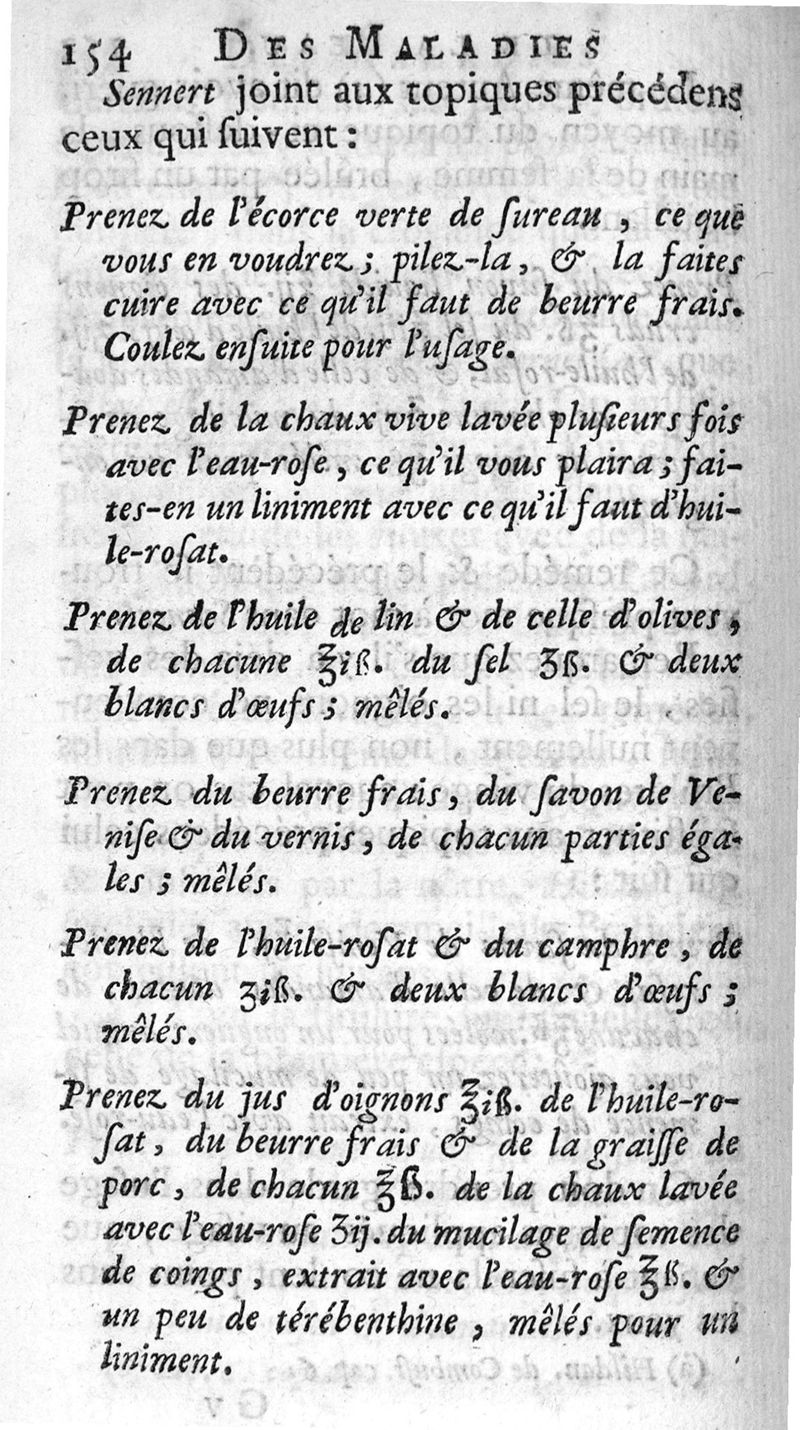 154 DES MALADIES
Sennert joint aux topiques précédens
ceux qui ſuivent :
Prenez de l'écorce verte de ſureau , ce que
vous en voudrez ; pilez-la , & la faites
cuire avec ce qu'il faut de beurre frais.
Coulez enſuite pour l'uſage.
Prenez de la chaux vive lavée pluſieurs fois
avec l'eau-roſe , ce qu'il vous plaira ; fai-
tes-en un liniment avec ce qu'il faut d'hui-
le-roſat.
Prenez de l'huile de lin & de celle d'olives ,
de chacune ℥iß. du ſel ʒß. & deux
blancs d'œufs ; mêlés.
Prenez du beurre frais , du ſavon de Ve-
niſe & du vernis , de chacun parties éga-
les ; mêlés.
Prenez de l'huile-roſat & du camphre , de
chacun ʒiß. & deux blancs d'œufs ;
mêlés.
Prenez du jus d'oignons ℥iß. de l'huile-ro-
ſat , du beurre frais & de la graiſſe de
porc , de chacun ℥ß. de la chaux lavée
avec l'eau-roſe ʒij. du mucilage de ſemence
de coings , extrait avec l'eau-roſe ℥ß. &
un peu de térébenthine , mêlés pour un
liniment.